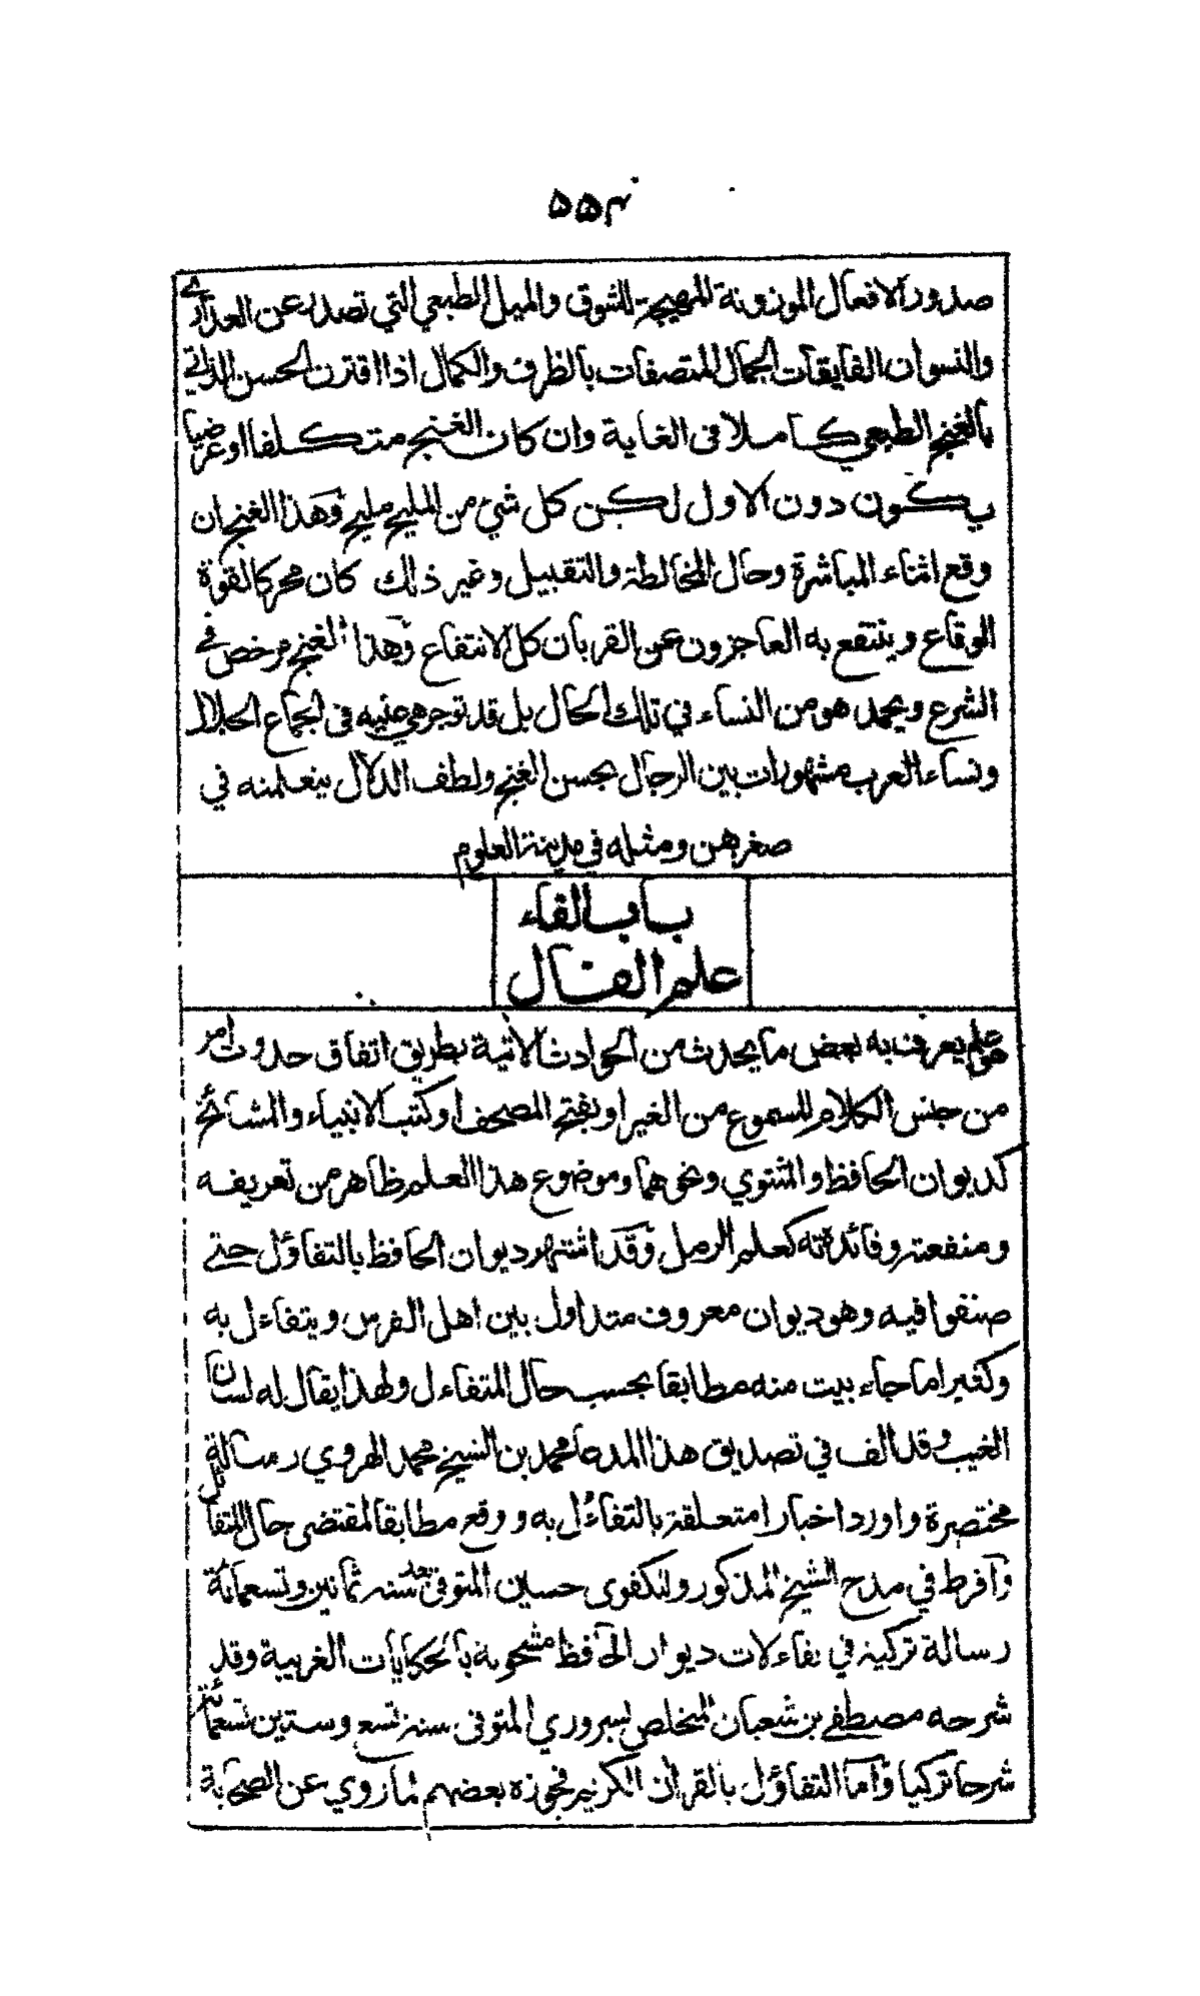 ۵۵۴
صدور الافعال الموزونة المهيجة للشوق والميل الطبعي التي تصدر عن العذارے
والنسوان الفايقات الجمال المتصفات بالظرف والكمال اذا اقترن الحسن الذاتي
بالغنج الطبعي كاملا فى الغاية وان كان الغنج متكلفا او عرضيا
يكون دون الاول لكن كل شئ من المليح مليح وهذا الغنج ان
وقع اثناء المباشرة وحال المخالطة والتقبيل وغير ذلك كان محركا لقوة
الوقاع وينتفع به العاجزون عن القربان كل الانتفاع وهذا الغنج مرخص في
الشرع ويحمد هو من النساء في تلك الحال بل قد توجر هي عنيه فى الجماع الحلال
ونساء العرب مشهورات بين الرجال بحسن الغنج ولطف الدلال يتعلمنه في
صغرهن ومثله في مدينة العلوم
باب الفاء
علم الفال
هو علم يعرف به بعض ما يحدث من الحوادث الاتية بطريق اتفاق حدوث امر
من جنس الكلام المسموع من الغير او بفتح المصحف او كتب الانبياء والمشائخ
كديوان الحافظ والمثنوي ونحوهما وموضوع هذا العلم ظاهر من تعريفه
ومنفعته وفائدته كعلم الرمل وقد اشتهر ديوان الحافظ بالتفاؤل حتے
صنفوا فيه وهو ديوان معروف متداول بين اهل الفرس ويتفاءل به
وكثيرا ما جاء بيت منه مطابقا بحسب حال المتفاءل ولهذا يقال له لسان
الغيب وقد الف في تصديق هذا المدعا محمد بن الشيخ محمد الهروي رسالة
مختصرة واورد اخبارا متعلقة بالتفاءل به ووقع مطابقا لمقتضى حال المتفائل
وافرط في مدح الشيخ المذكور ولكفوى حسين المتوفى بعد سنة ثمانين وتسعمائة
رسالة تركية في تفاءلات ديوان الحافظ مشحونة بالحكايات الغريبة وقد
شرحه مصطفے بن شعبان المتخلص بسروري المتوفى سنة تسع وستين تسعمائة
شرحا تركيا واما التفاؤل بالقران الكريم فجوزه بعضهم لما روي عن الصحابة